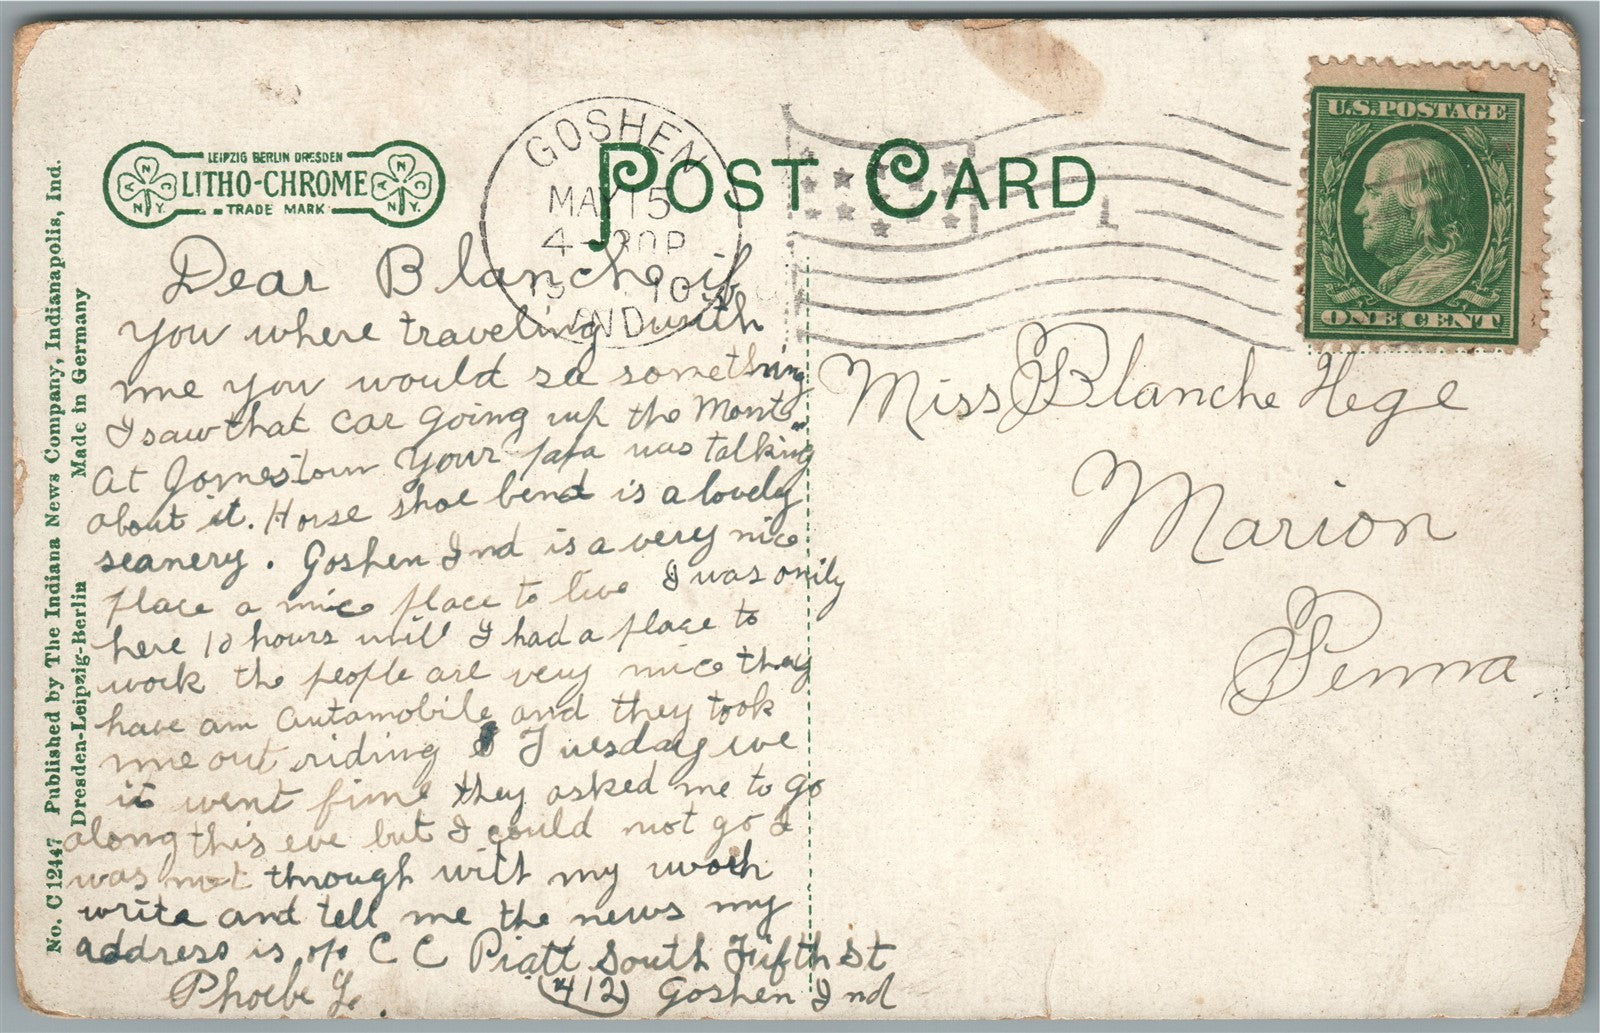 LEIPZIG BERLIN DRESDEN
LITHO-CHROME
TRADE MARK
A N C N.Y.
A N C N.Y.
POST CARD
GOSHEN
MAY 15
4-30P
1910
IND.
1
U.S. POSTAGE
ONE CENT
No. C12447 Published by The Indiana News Company, Indianapolis, Ind.
Dresden-Leipzig-Berlin Made in Germany
Dear Blanche if
you where traveling with
me you would sa something
I saw that car going up the Mont.
At Jomestown your papa was talking
about it. Horse shoe bend is a lovely
seanery. Goshen Ind is a very nice
place a nice place to live I was only
here 10 hours until I had a place to
work the people are very nice they
have am automobile and they took
me out riding Tuesday we
it went fine they asked me to go
along this eve but I could not go I
was not through with my work
write and tell me the news my
address is c/o C C Piatt South Fifth St
(412) Goshen Ind
Phoebe Y.
Miss Blanche Hege
Marion
Penna